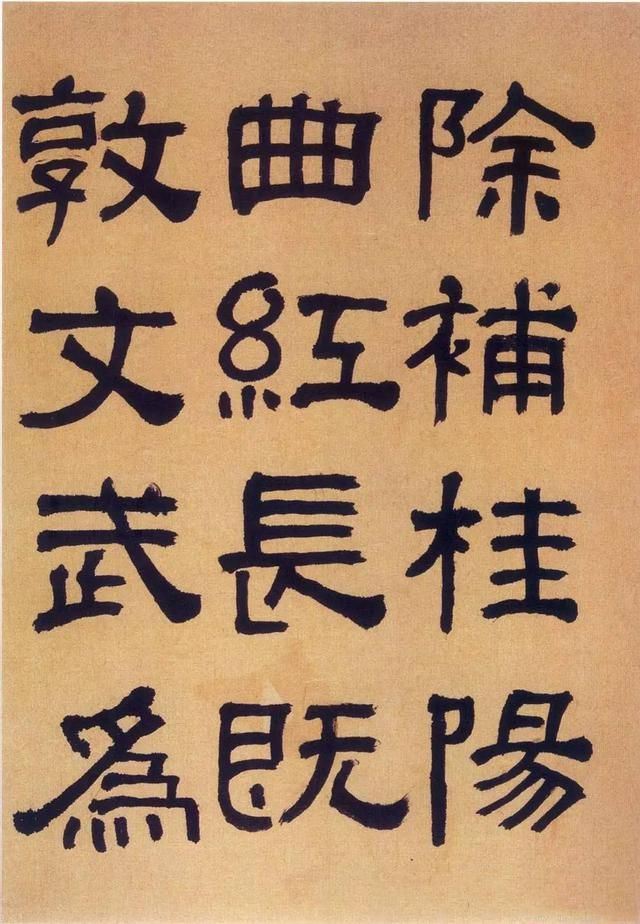 除補桂陽
曲紅長既
敦文武為